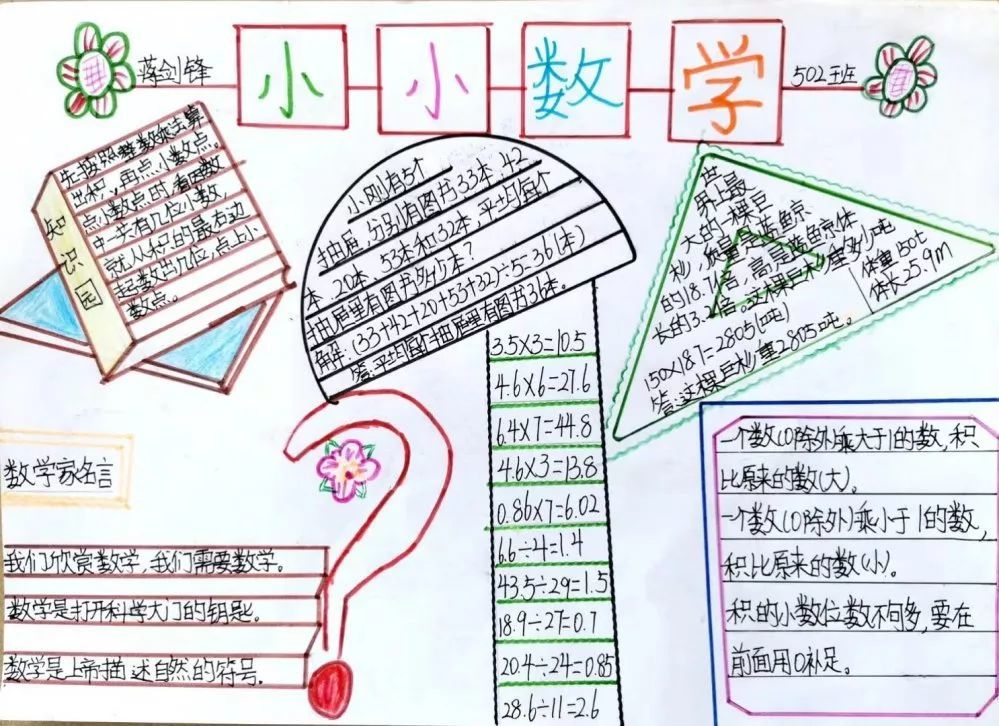 蒋剑锋
小小数学
502班
知识园
先按照整数乘法算
出积,再点小数点。
点小数点时,看因数
中一共有几位小数,
就从积的最右边
起数出几位,点上小
数点。
小刚有5个
抽屉,分别有图书33本、42
本、20本、53本和32本,平均每个
抽屉里有图书多少本?
解:(33+42+20+53+32)÷5=36(本)
答:平均每个抽屉里有图书36本。
世
界上最
大的一棵巨
杉,质量是蓝鲸
的18.7倍,高是蓝鲸体
长的3.2倍。这棵巨杉重多少吨
体重150t
体长25.9m
150×18.7=2805(吨)
答:这棵巨杉重2805吨。
3.5×3=10.5
4.6×6=27.6
6.4×7=44.8
4.6×3=13.8
0.86×7=6.02
6.6÷4=1.4
43.5÷29=1.5
18.9÷27=0.7
20.4÷24=0.85
28.6÷11=2.6
数学家名言
我们欣赏数学,我们需要数学。
数学是打开科学大门的钥匙。
数学是上帝描述自然的符号。
一个数(0除外)乘大于1的数,积
比原来的数(大)。
一个数(0除外)乘小于1的数,
积比原来的数(小)。
积的小数位数不句多,要在
前面用0补足。